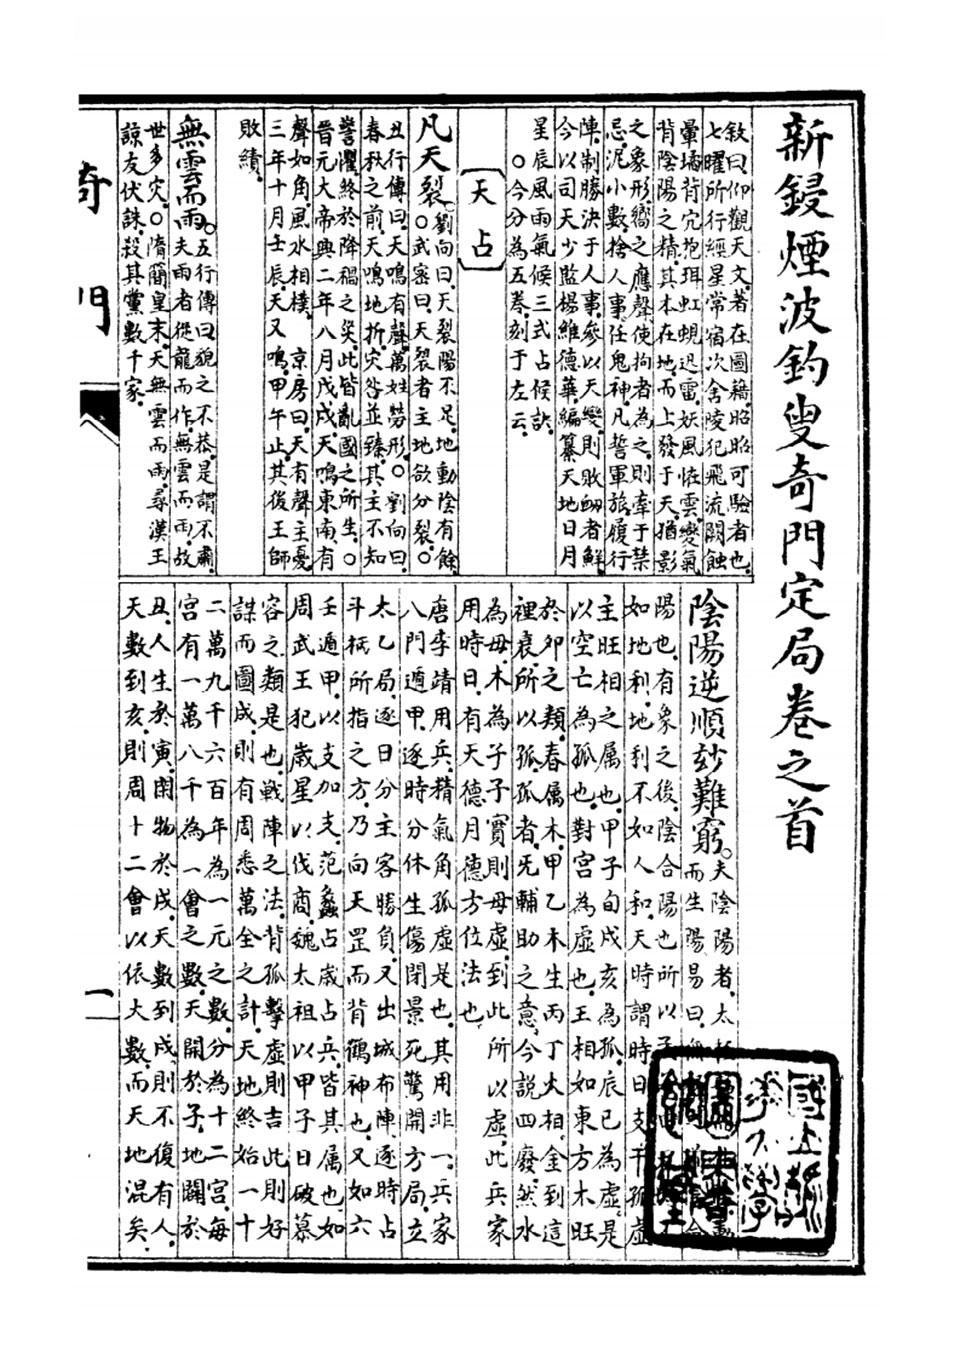 新鋟煙波釣叟奇門定局卷之首
敘曰仰觀天文著在圖籍昭昭可驗者也
七曜所行經星常宿次舍陵犯飛流鬬蝕
暈璚背穴抱珥虹蜺迅雷妖風恠雲變氣
背陰陽之精其本在地而上發于天猶影
之象形嚮之應聲使拘者為之則牽于禁
忌泥小數捨人事任鬼神凡誓軍旅履行
陣制勝決于人事參以天變則敗衂者鮮
今以司天少監楊維德華編纂天地日月
星辰風雨氣候三式占候訣
○今分為五卷刻于左云
天占
凡天裂○劉向曰天裂陽不足地動陰有餘
○武密曰天裂者主地欲分裂○
丑行傳曰天鳴有聲萬姓勞形○劉向曰
春秋之前天鳴地拆灾咎並臻其主不知
警懼終於降禍之矣此皆亂國之所生○
晉元大帝興二年八月戊戌天鳴東南有
聲如角風水相樸 京房曰天有聲主憂
三年十月壬辰天又鳴甲午止其後王師
敗績
無雲而雨○五行傳曰貌之不恭是謂不肅
夫雨者從龍而作無雲而雨故
世多灾○隋簡皇末天無雲而雨尋漢王
諒友伏誅殺其黨數千家
陰陽逆順玅難窮○夫陰陽者太
而生陽易曰
陽也有象之後陰合陽也所以
如地利地利不如人和天時謂時日支干孤虛
主旺相之属也甲子旬戌亥為孤辰巳為虛是
以空亡為孤也對宮為虛也王相如東方木旺
於卯之類春属木甲乙木生丙丁火相金到這
裡衰所以孤孤者旡輔助之意今説四廢然水
為母木為子子實則母虛到此所以虛此兵家
用時日有天德月德方位法也
唐李靖用兵精氣角孤虛是也其用非一兵家
八門遁甲逐時分休生傷閉景死驚開方局立
太乙局逐日分主客勝負又出城布陣逐時占
斗柄所指之方乃向天罡而背鶴神也又如六
壬遁甲以支加支范蠡占歲占兵皆其属也如
周武王犯歲星以伐商魏太祖以甲子日破慕
容之類是也戰陣之法背孤擊虛則吉此則好
謀而圖成則有周悉萬全之計天地終始一十
二萬九千六百年為一元之數分為十二宮每
宮有一萬八千為一會之數天開於子地闢於
丑人生於寅閉物於戌天數到戌則不復有人
天數到亥則周十二會以依大數而天地混矣
奇門
一